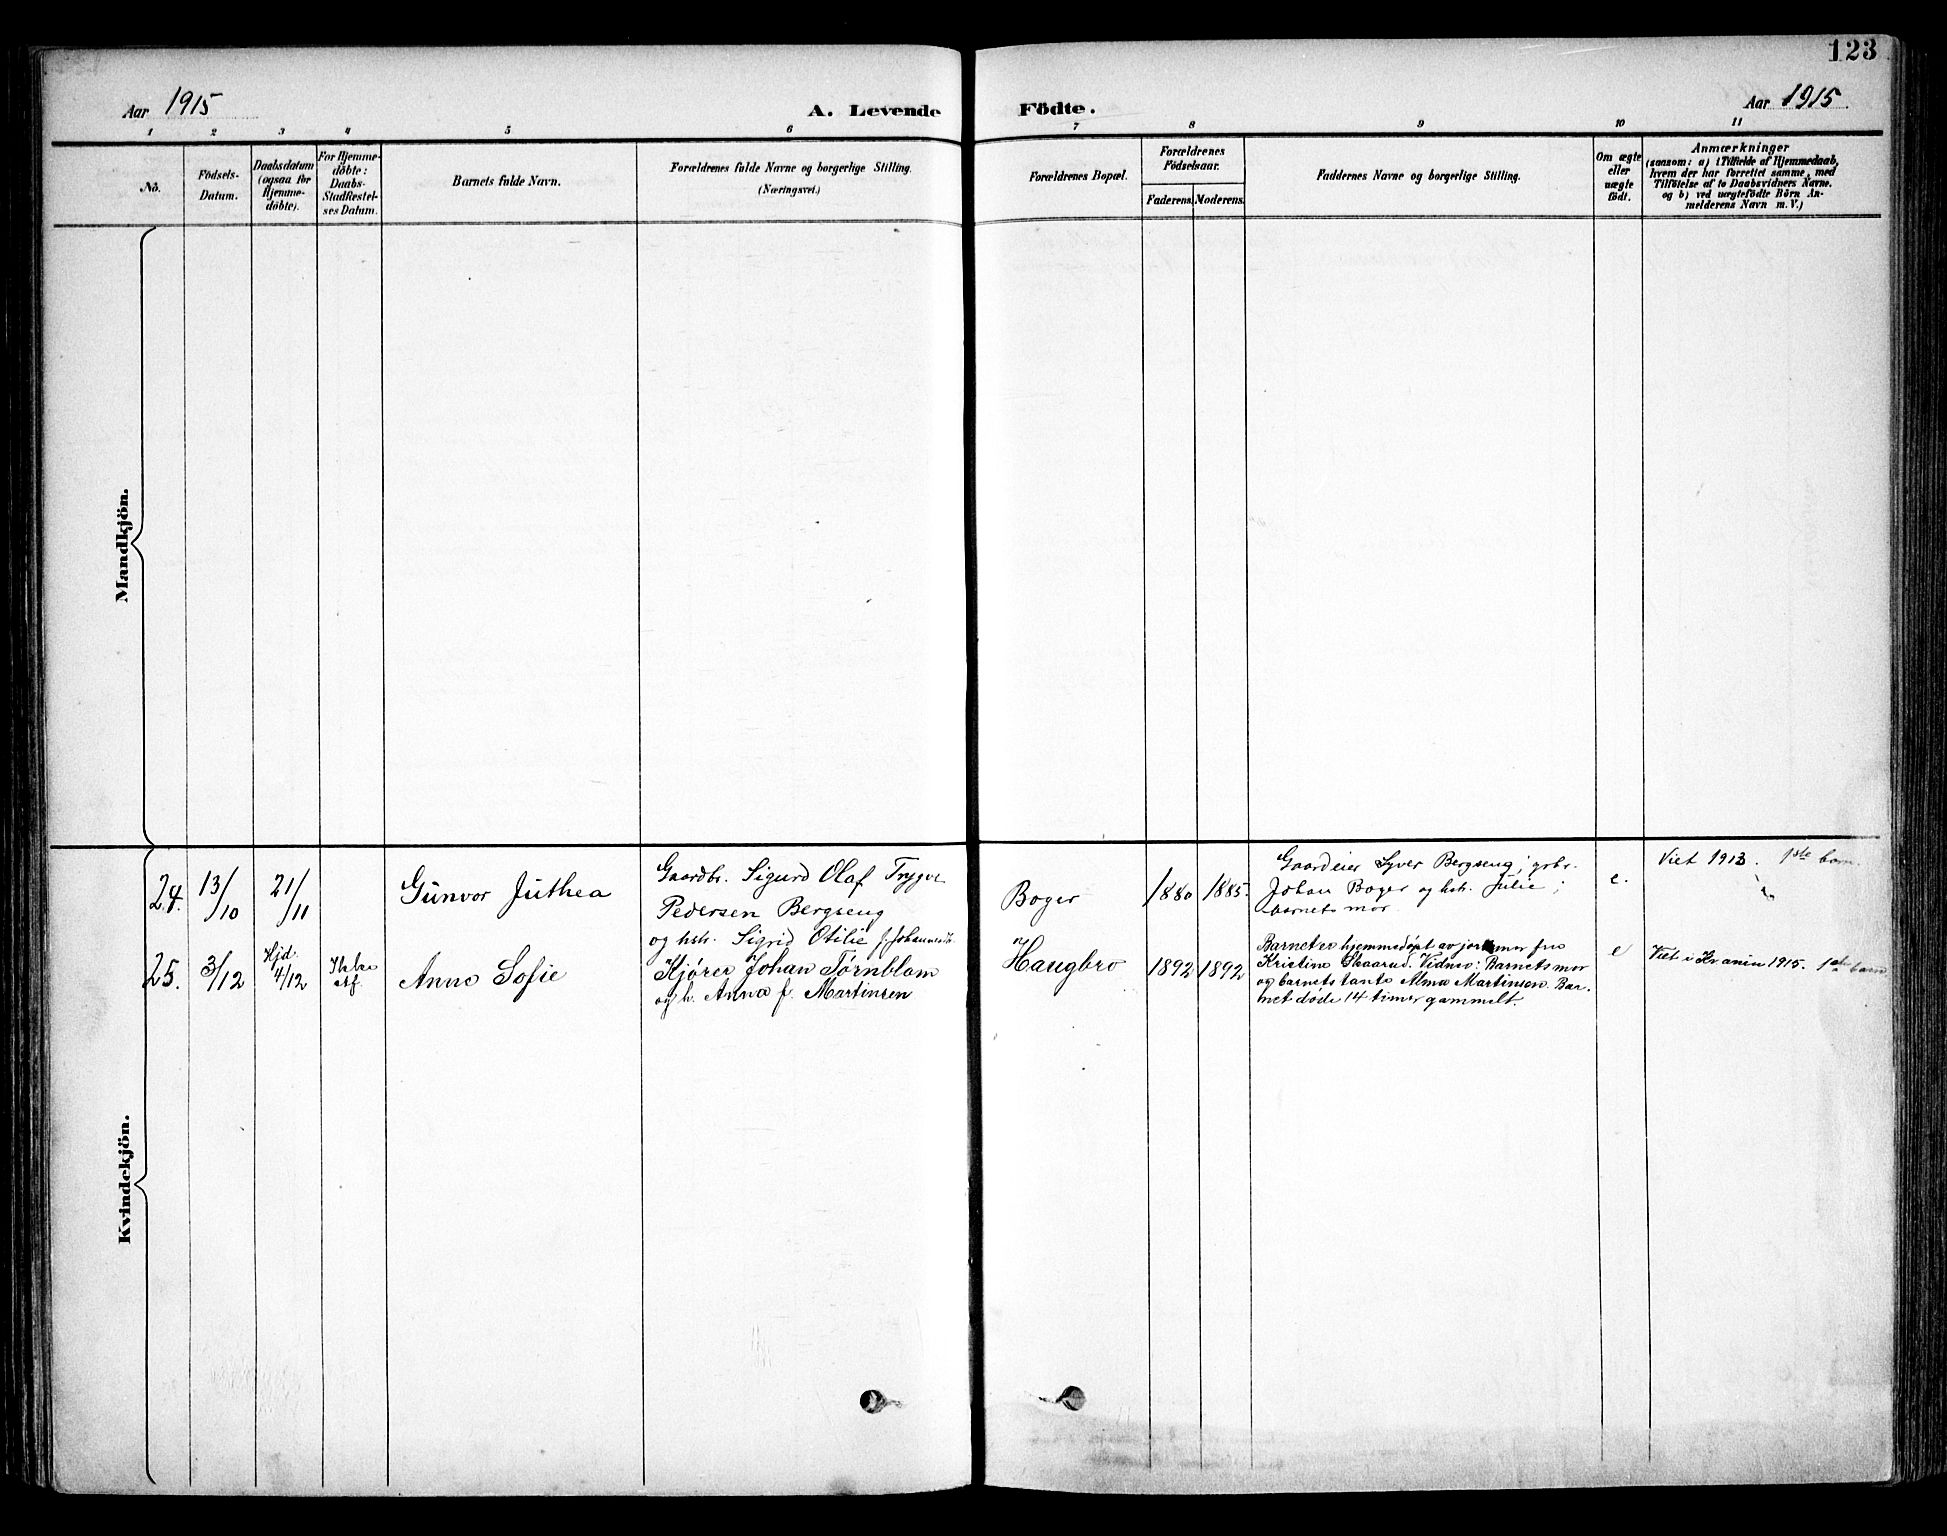 123
Aar 1915
A. Levende Födte.
Aar 1915.
1 2 3 4 5 6 7 8 9 10 11
No.
Födsels-
Datum.
Daabsdatum
(ogsaa for
Hjemme-
döbte).
For Hjemme-
döbte:
Daabs-
Stadfæstel-
ses Datum.
Barnets fulde Navn.
Forældrenes fulde Navne og borgerlige Stilling.
(Næringsvei.)
Forældrenes Bopæl.
Forældrenes
Födselsaar.
Faderens.
Moderens.
Faddernes Navne og borgerlige Stilling.
Om ægte
eller
uægte
födt.
Anmærkninger
(saasom: a) i Tilfælde af Hjemmedaab,
hvem der har forrettet samme, med
Tilföielse af to Daabsvidners Navne.
og b) ved uægtefödte Börn An-
melderens Navn m. V.)
Mandkjön.
Kvindekjön.
24.
13/10
21/11
Gunvor Juthea
Gaardbr. Sigurd Olaf Trygve
Pedersen Bergseng
og hstr. Sigrid Otilie f. Johannesdt.
Boger
1880
1885.
Gaardeier Syver Bergseng; grbr.
Johan Boger og hstr. Julie;
barnets mor
e.
Viet 1913. 1ste barn.
25.
3/12
Hjd.
4/12
Anna Sofie
Kjører Johan Törnblom
og h. Anna f. Martinsen
Haugbro
1892
1892
Barnet er hjemmedöpt av jormor fru
Kristine Skaarud. Vidner: Barnets mor
og barnets tante Alma Martinsen. Bar-
net døde 14 timer gammelt.
e
Viet i Kr.ania 1915. 1ste barn